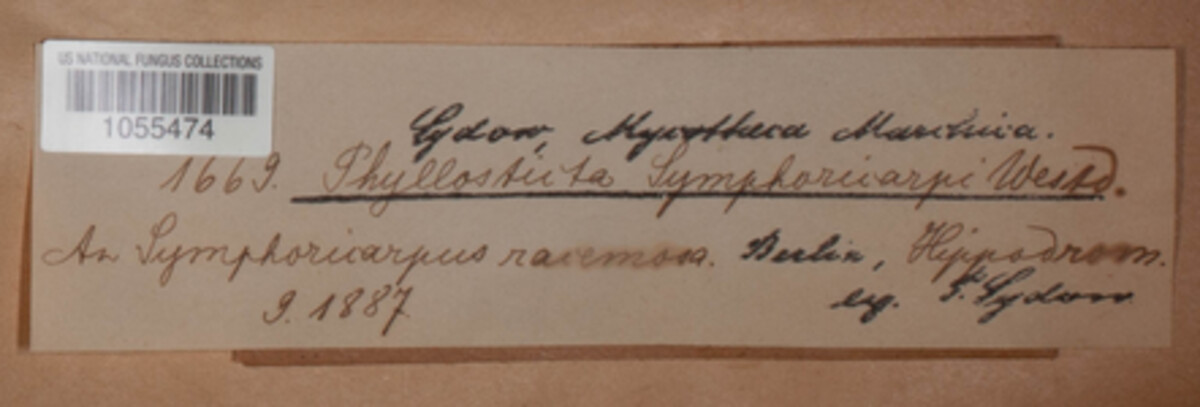 US NATIONAL FUNGUS COLLECTIONS
1055474
Sydow, Mycotheca Marchica.
1669. Phyllosticta Symphoricarpi Westd.
An Symphoricarpus racemosa. Berlin, Hippodrom.
9. 1887 leg. P. Sydow